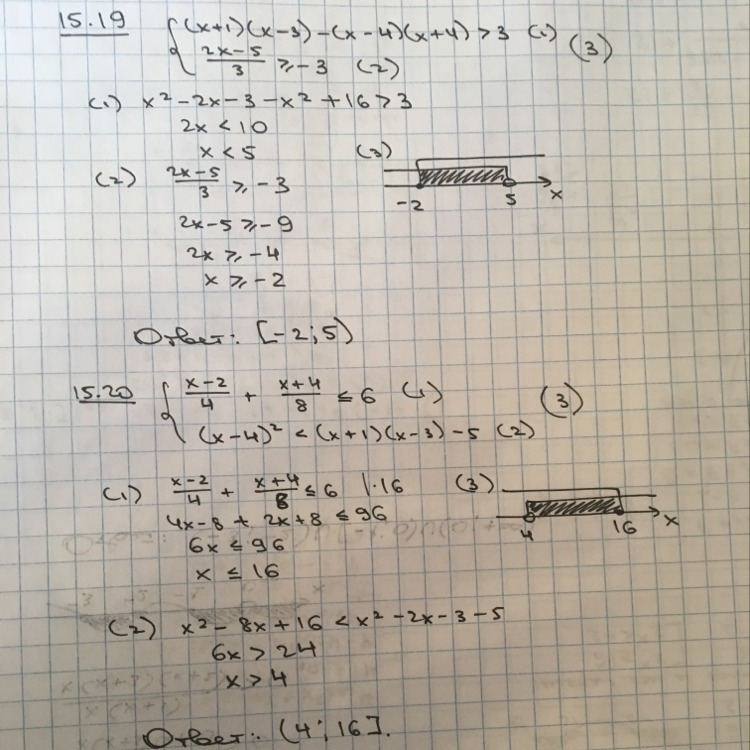 15.19 { (x+1)(x-3)-(x-4)(x+4)>3 (1) (3)
(2x-5)/3 ⩾ -3 (2)
(1) x² - 2x - 3 - x² + 16 > 3
2x < 10
x < 5
(3)
-2 5 x
(2) (2x-5)/3 ⩾ -3
2x-5 ⩾ -9
2x ⩾ -4
x ⩾ -2
Ответ: [-2; 5)
15.20 { (x-2)/4 + (x+4)/8 ≤ 6 (1) (3)
(x-4)² < (x+1)(x-3) - 5 (2)
(1) (x-2)/4 + (x+4)/8 ≤ 6 |·16
4x-8 + 2x+8 ≤ 96
6x ≤ 96
x ≤ 16
(3)
4 16 x
(2) x² - 8x + 16 < x² - 2x - 3 - 5
6x > 24
x > 4
Ответ: (4; 16].